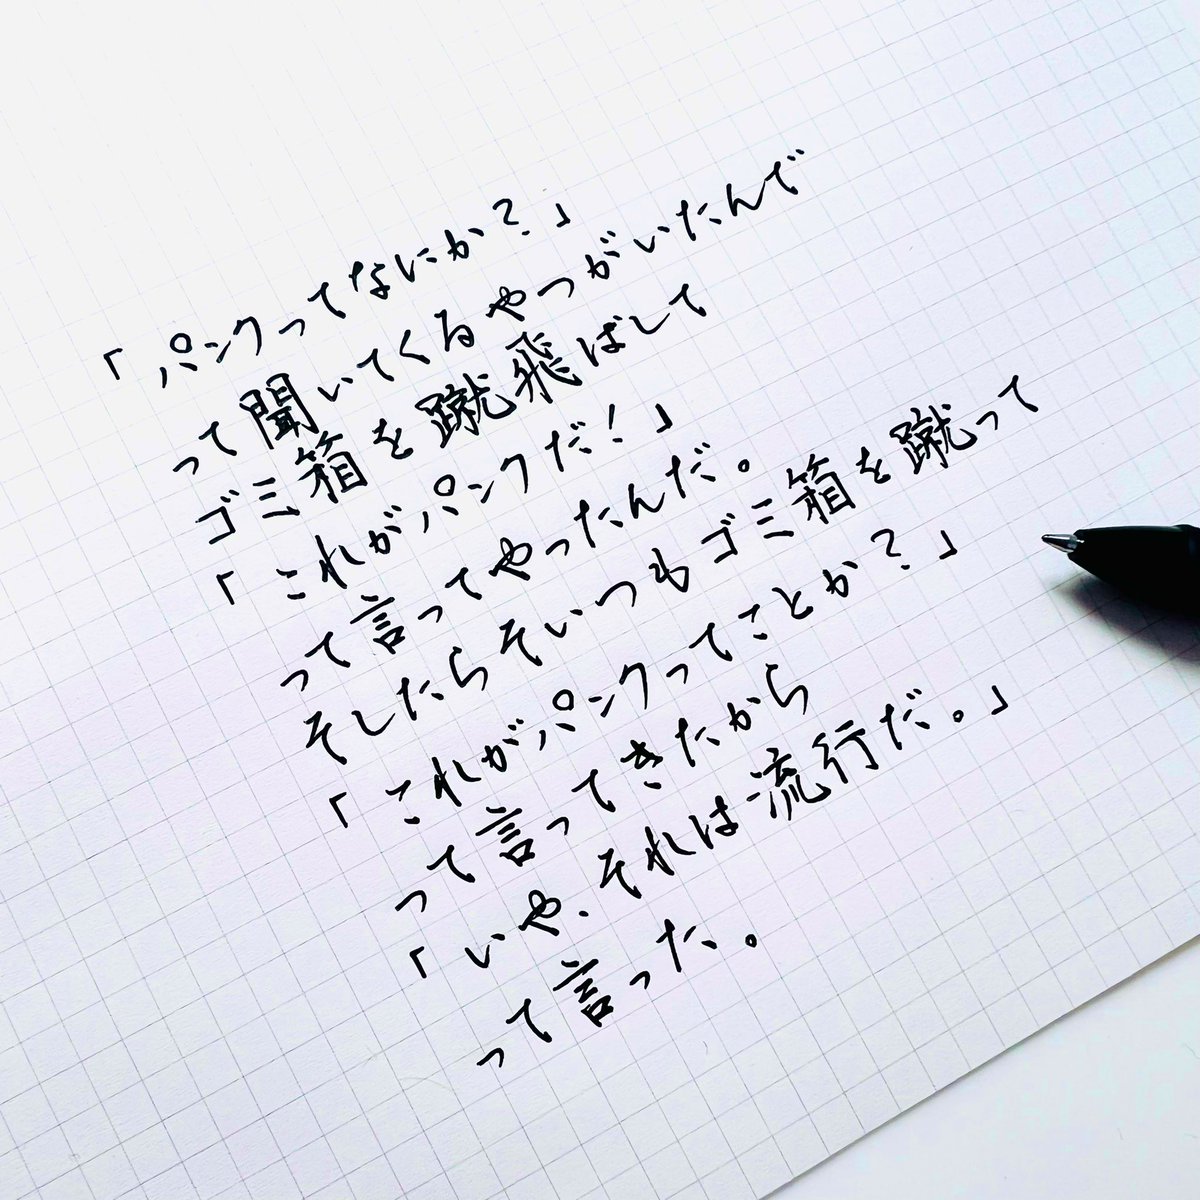 「パンクってなにか？」
って聞いてくるやつがいたんで
ゴミ箱を蹴飛ばして
「これがパンクだ！」
って言ってやったんだ。
そしたらそいつもゴミ箱を蹴って
「これがパンクってことか？」
って言ってきたから
「いや、それは流行だ。」
って言った。